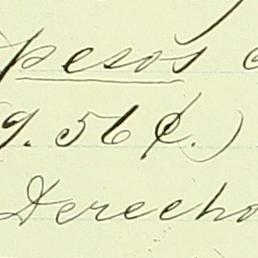 pesos
9.56 ¢.)
Derecho